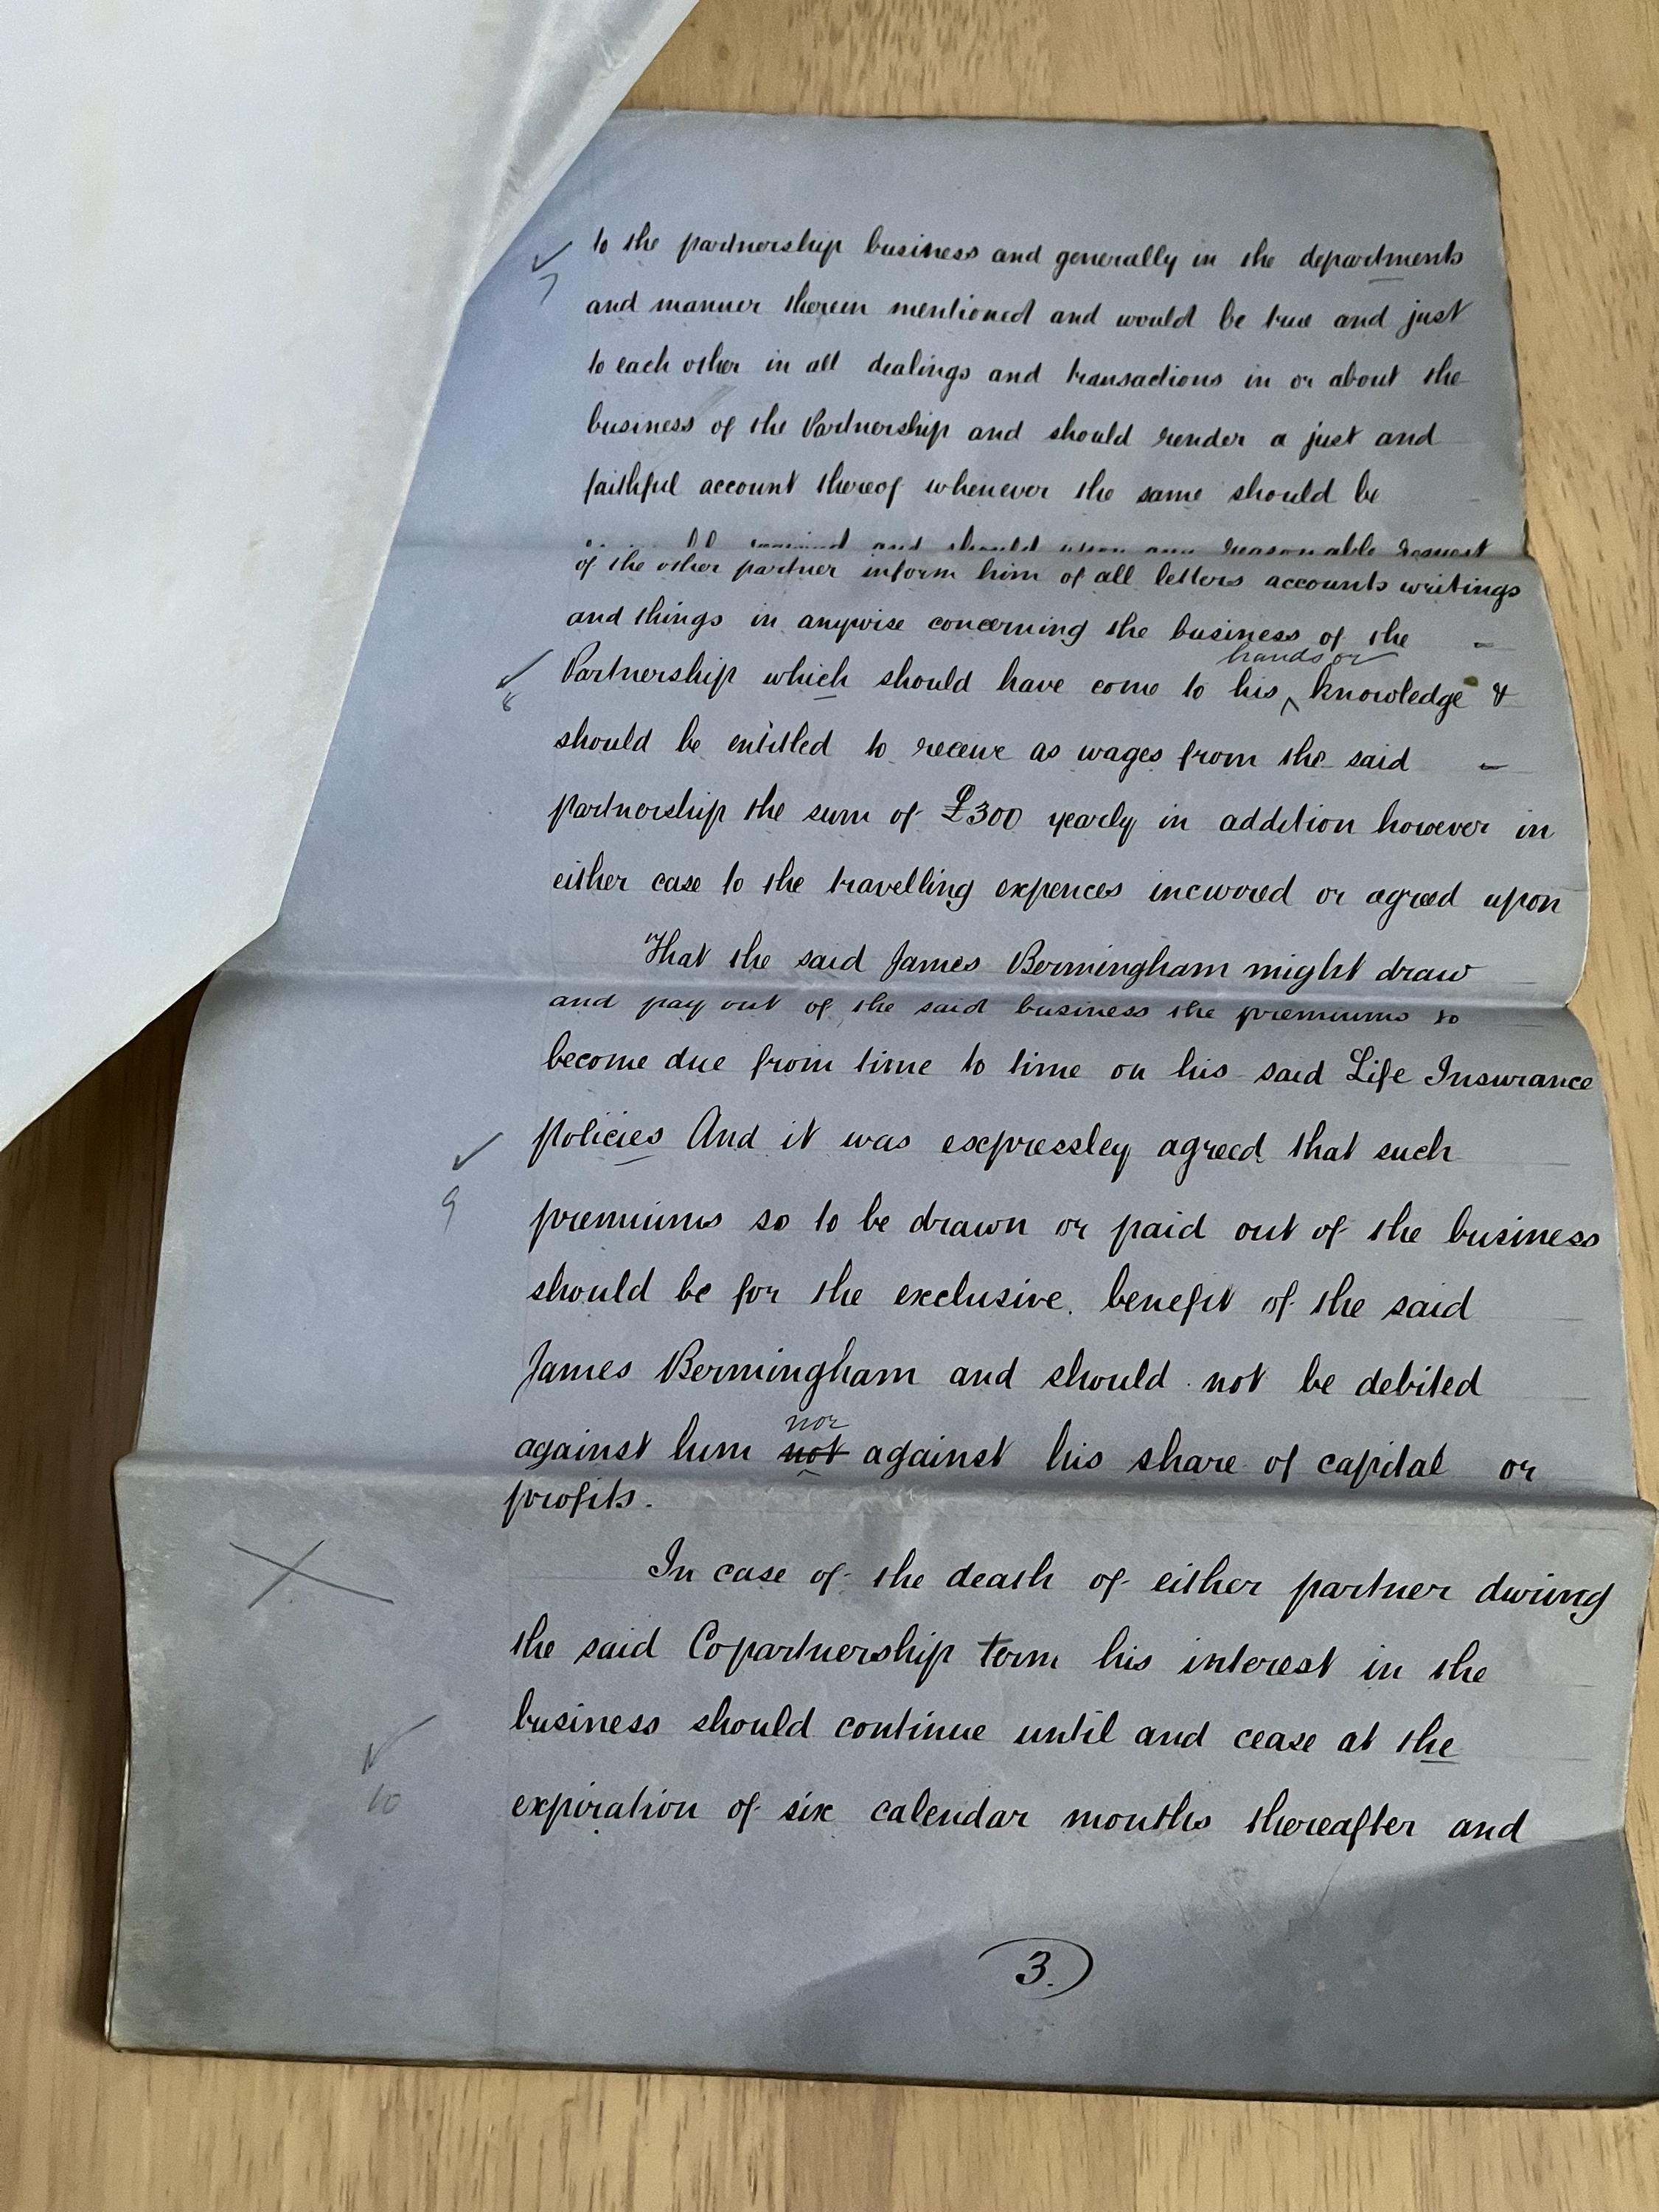 to the partnership business and generally in the departments
7
and manner therein mentioned and would be true and just
to each other in all dealings and transactions in or about the
business of the Partnership and should render a just and
faithful account thereof whenever the same should be
required and should upon any reasonable request
of the other partner inform him of all letters accounts writings
and things in anywise concerning the business of the
hands or
Partnership which should have come to his knowledge &
8
should be entitled to receive as wages from the said
partnership the sum of £300 yearly in addition however in
either case to the travelling expences incurred or agreed upon
That the said James Bermingham might draw
and pay out of the said business the premiums to
become due from time to time on his said Life Insurance
policies And it was expressley agreed that such
9
premiums so to be drawn or paid out of the business
should be for the exclusive benefit of the said
James Bermingham and should not be debited
nor
against him not against his share of capital or
profits.
In case of the death of either partner during
the said Copartnership term his interest in the
business should continue until and cease at the
10
expiration of six calendar months thereafter and
3.